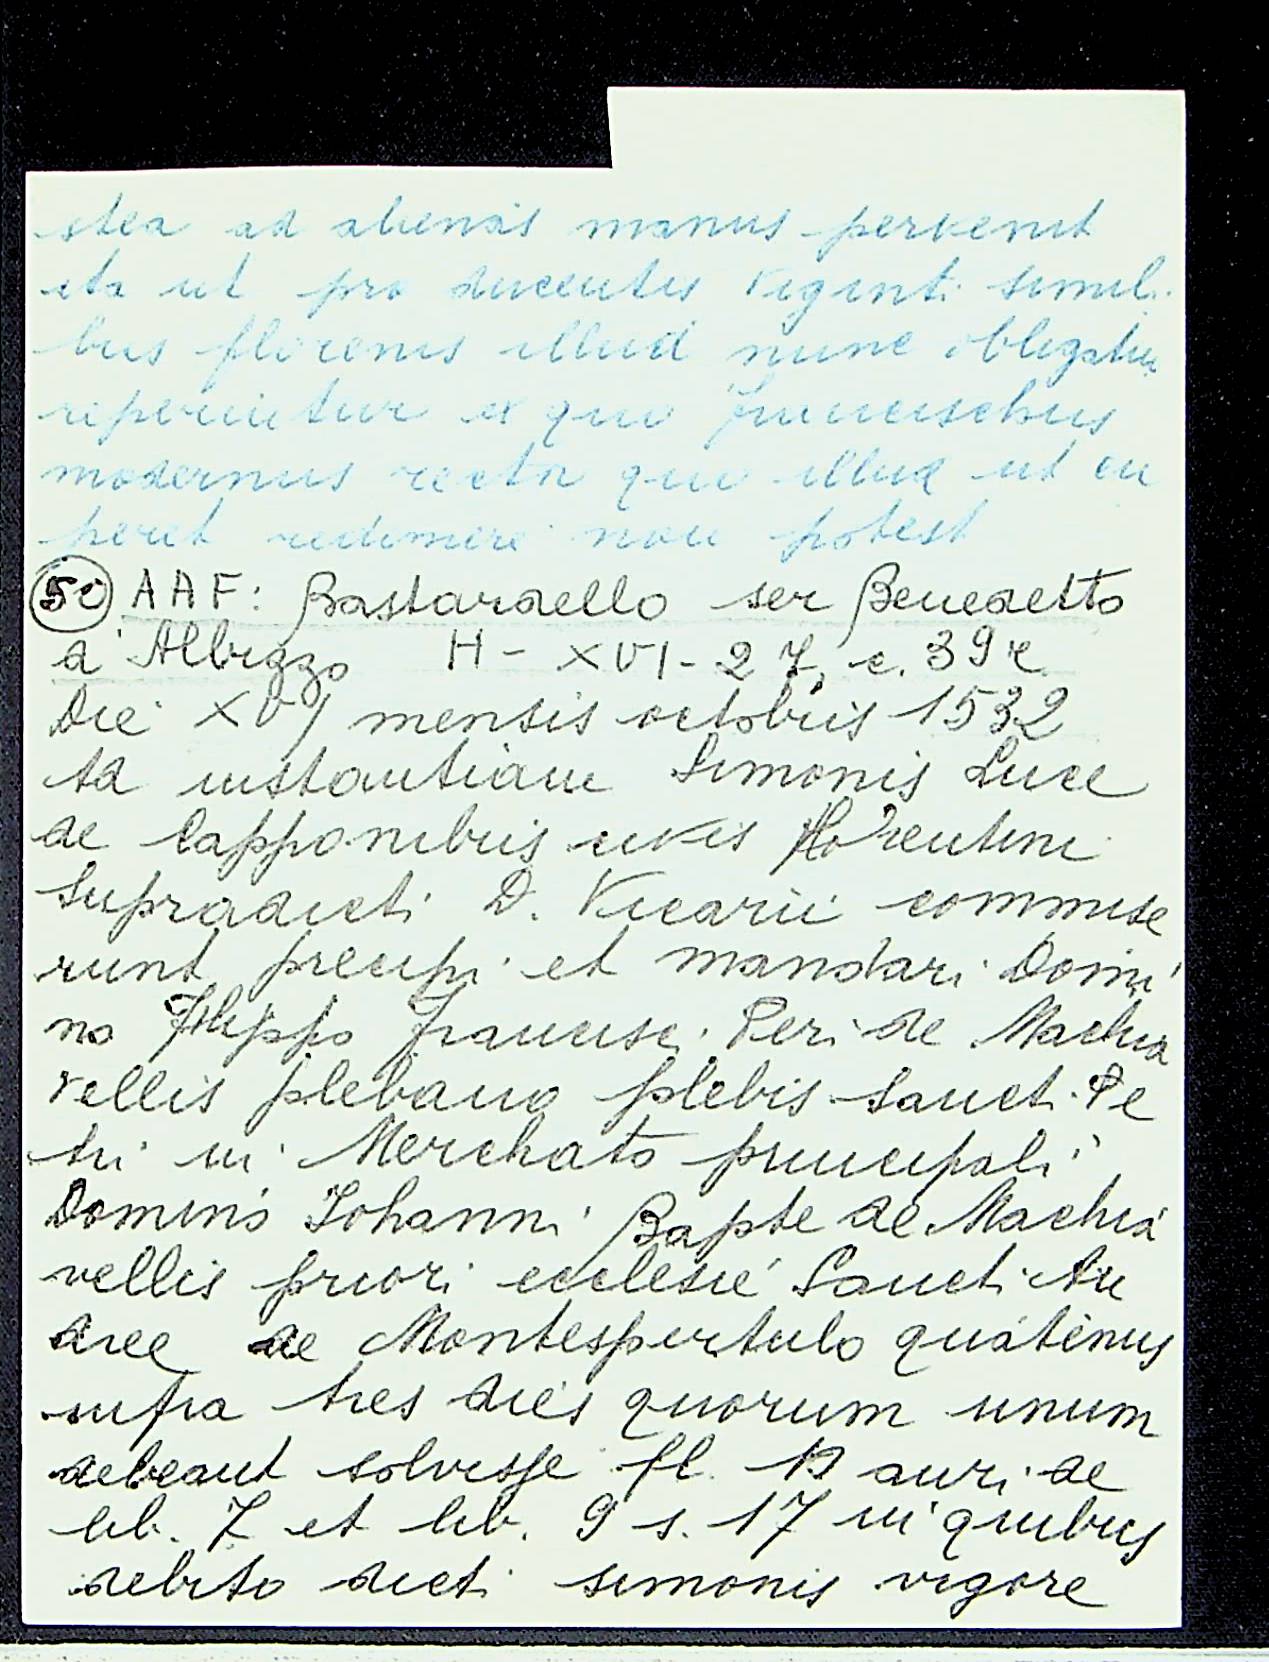 stea ad alienas manus pervenit
ita ut pro ducentis viginti simili
bus florenis illud nunc obligatum
reperiatur ex quo Francischus
modernus rector quo illud ut cu
peret redimere non potest
50 AAF: Bastardello ser Benedetto
d'Albizzo H - XVI - 27, c. 39r
Die XVJ mensis octobris 1532
Ad instantiam Simonis Luce
de Capponibus civis florentini
Supradicti D. Vicarii commise
runt precipi et mandari Domi
no Filippo Francisci Peri de Machia
vellis plebano plebis Sancti Pe
tri in Merchato principali
Domino Johanni Bapte de Machia
vellis priori ecclesie Sancti An
dree de Montespertulo quatenus
infra tres dies quorum unum
debeant solvisse fl. 12 auri de
lib. 7 et lib. 9 s. 17 in quibus
debito dicti simonis vigore